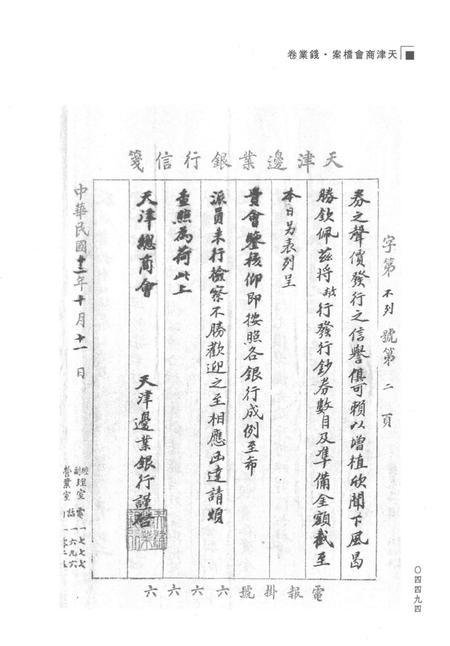 天津商會檔案·錢業卷
天津邊業銀行信箋
字第不列號第二頁
券之聲價發行之信譽俱可賴以增植欣聞下風曷
勝欽佩茲將敝行發行鈔券數目及準備金額截至
本日另表列呈
貴會鑒核仰即按照各銀行成例至希
派員來行檢察不勝歡迎之至相應函達請煩
查照為荷此上
天津總商會
天津邊業銀行謹啓
中華民國十三年十月十一日
總理室電一七七七
副理室 一六九六
營業室話
電報掛號六六六六
〇四四九四